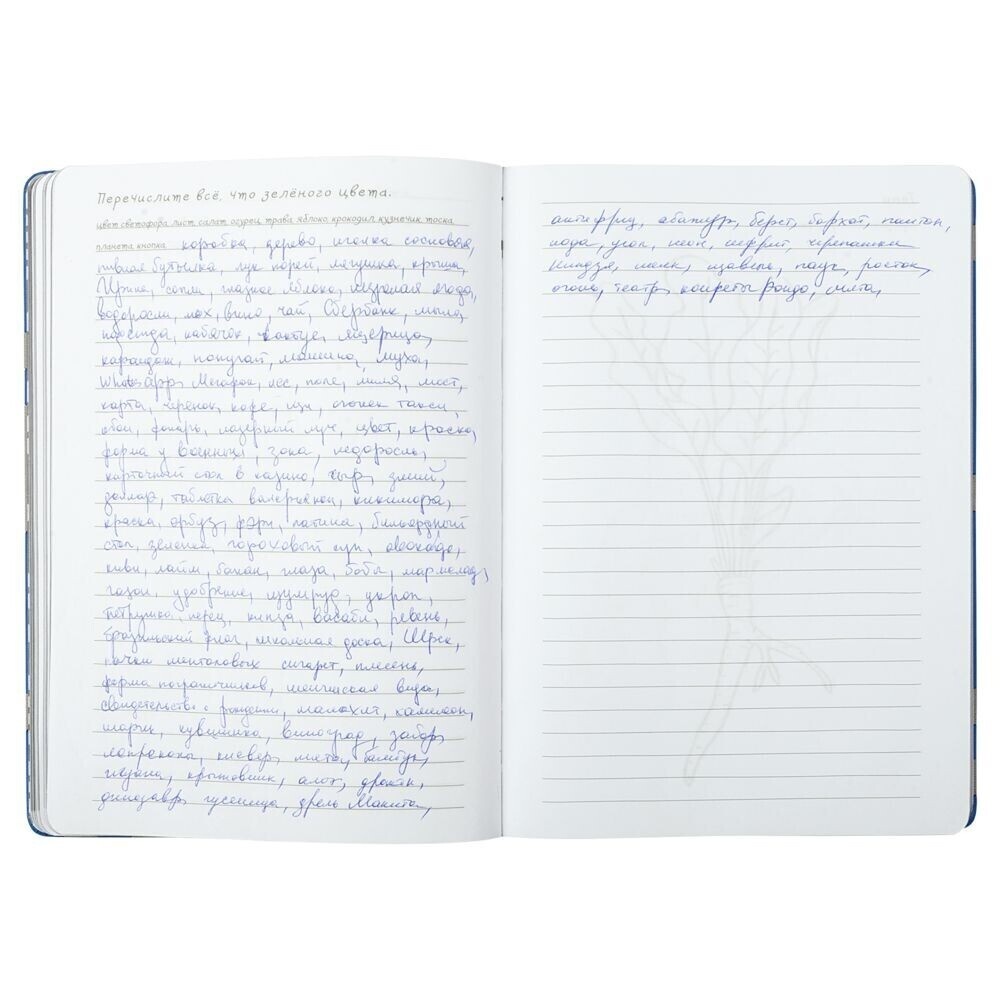 Перечислите всё, что зелёного цвета.
цвет светофора, лист, салат, огурец, трава, яблоко, крокодил, кузнечик, тоска,
планета, кнопка, коробка, дерево, иголка сосновая,
пивная бутылка, лук порей, лягушка, крыша,
сопли, глазное яблоко, незрелая ягода,
водоросли, мох, вино, чай, Сбербанк, мыло,
кабачок, кактус, ящерица,
карандаш, попугай, машина, муха,
WhatsApp, Мегафон, лес, поле, миля, мост,
карта, черенок, кофе, щи, огонек такси,
обои, фонарь, лазерный луч, цвет, краска,
форма у военных, зона, недоросль,
карточный стол в казино, сыр, змий,
доллар, таблетка валерьянки, кикимора,
краска, арбуз, фэри, патина, бильярдный
стол, зеленка, гороховый суп, авокадо,
киви, лайм, банан, глаза, бобы, мармелад,
газон, удобрение, изумруд, укроп,
петрушка, перец, кинза, васаби, ревень,
бразильский флаг, школьная доска, Шрек,
пачки ментоловых сигарет, плесень,
форма пограничников, шенгенская виза,
свидетельство о рождении, малахит, хамелеон,
шарик, кувшинка, виноград, забор,
клевер, мята, бамбук,
крыжовник, алоэ, дракон,
динозавр, гусеница, дрель Макита,
антифриз, абажур, берет, бархат, питон,
йода, угол, неон, нефрит, черепашки
Ниндзя, шелк, щавель, паук, росток,
огонь, театр, конфеты Рондо, смета,